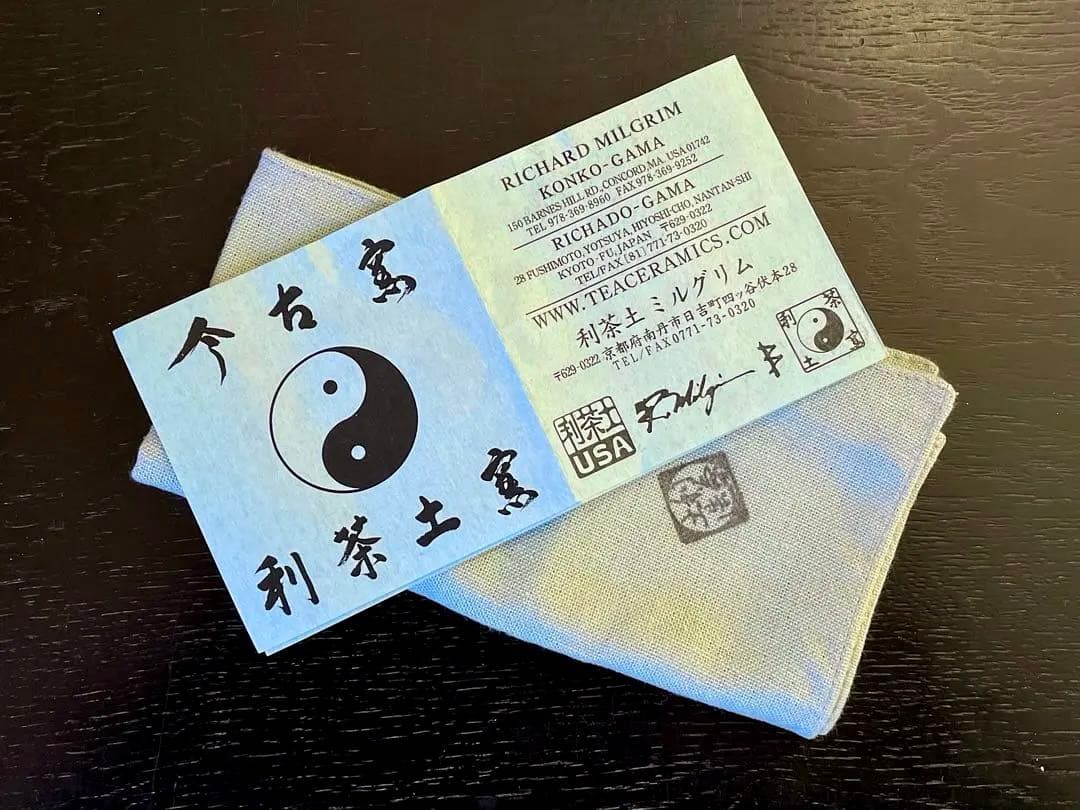 今古窯
利茶土窯
RICHARD MILGRIM
KONKO-GAMA
150 BARNES HILL RD., CONCORD, MA. USA 01742
TEL 978-369-8960 FAX 978-369-9252
RICHADO-GAMA
28 FUSHIMOTO, YOTSUYA, HIYOSHI-CHO, NANTAN-SHI
KYOTO-FU, JAPAN 〒629-0322
TEL/FAX (81) 771-73-0320
WWW.TEACERAMICS.COM
利茶土ミルグリム
〒629-0322 京都府南丹市日吉町四ッ谷伏本28
TEL/FAX 0771-73-0320
利茶土
USA
R. Milgrim
利茶土窯